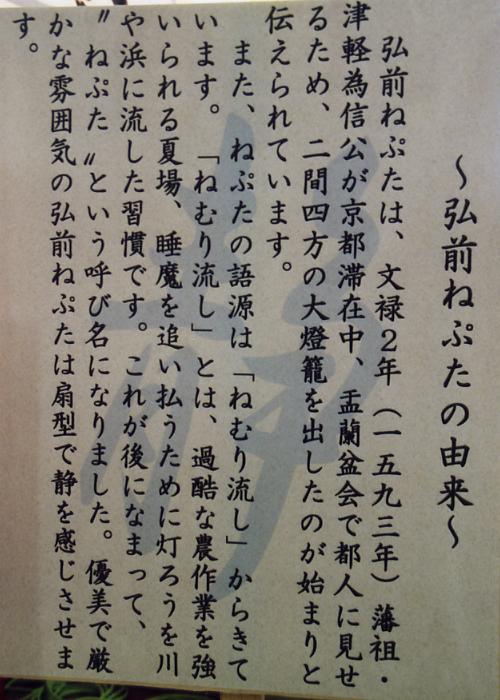 ～弘前ねぷたの由来～
弘前ねぷたは、文禄２年（一五九三年）藩祖・
津軽為信公が京都滞在中、盂蘭盆会で都人に見せ
るため、二間四方の大燈籠を出したのが始まりと
伝えられています。
また、ねぷたの語源は「ねむり流し」からきて
います。「ねむり流し」とは、過酷な農作業を強
いられる夏場、睡魔を追い払うために灯ろうを川
や浜に流した習慣です。これが後になまって、
〝ねぷた〟という呼び名になりました。優美で厳
かな雰囲気の弘前ねぷたは扇型で静を感じさせま
す。
静